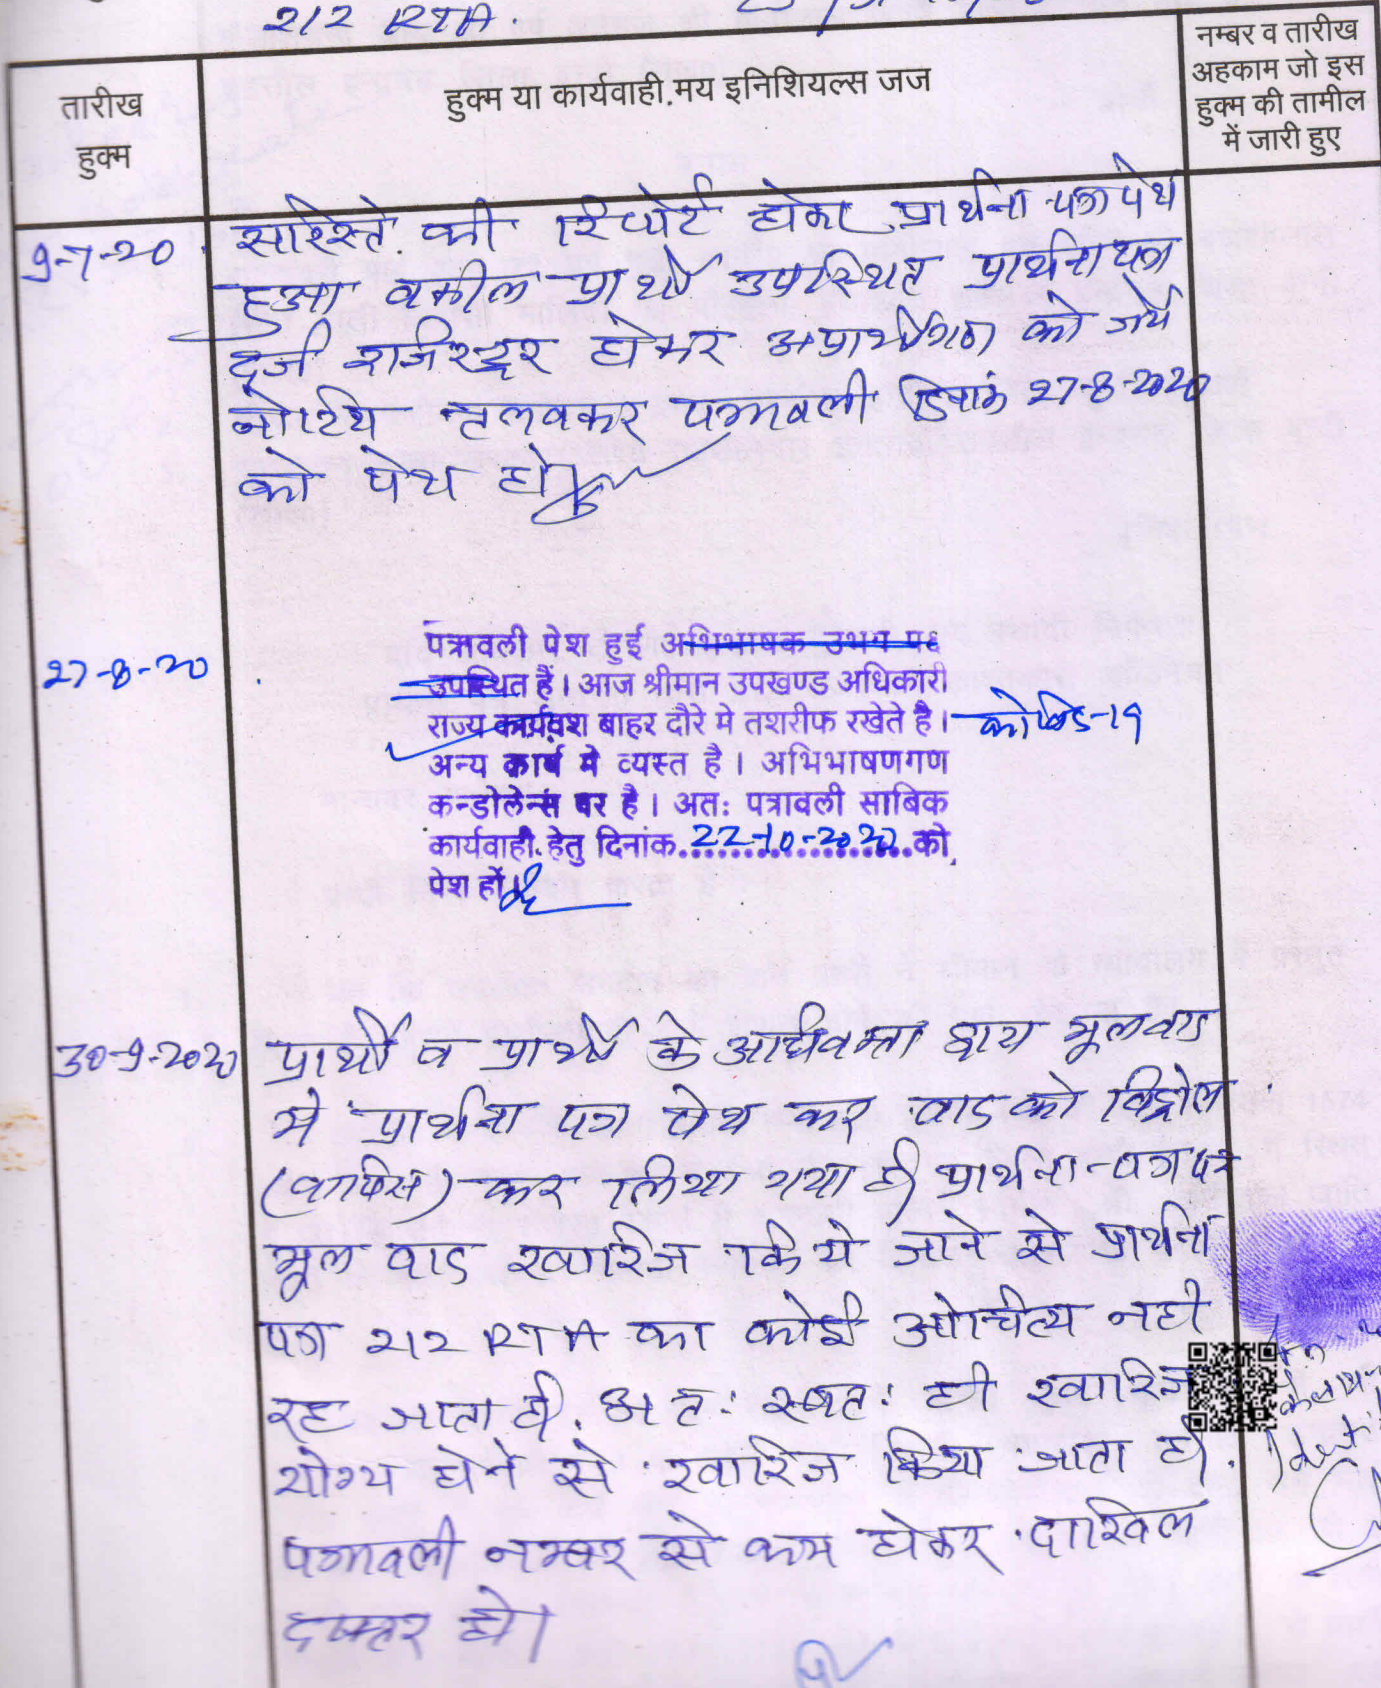 212 RTA.
तारीख
हुक्म
हुक्म या कार्यवाही.मय इनिशियल्स जज
नम्बर व तारीख
अहकाम जो इस
हुक्म की तामील
में जारी हुए
9-7-20
सरिस्ते की रिपोर्ट होकर प्रार्थना पत्र पेश
हुआ वकील प्रार्थी उपस्थित प्रार्थना पत्र
दर्ज रजिस्टर होकर अप्रार्थीगण को जर्ये
नोटिस तलबकर पत्रावली दिनांक 27-8-2020
को पेश हो
27-8-20
पत्रावली पेश हुई अभिभाषक उभय पक्ष
उपस्थित हैं। आज श्रीमान उपखण्ड अधिकारी
राज्य कार्यवश बाहर दौरे मे तशरीफ रखेते है। कोविड-19
अन्य कार्य मे व्यस्त है। अभिभाषणगण
कन्डोलेन्स पर है। अतः पत्रावली साबिक
कार्यवाही हेतु दिनांक 22-10-2020 को
पेश हों।
30-9-2020
प्रार्थी व प्रार्थी के अधिवक्ता द्वारा मूल वाद
मे प्रार्थना पत्र पेश कर वाद को विड्रोल
(वापिस) कर लिया गया है। प्रार्थना-पत्र पर
मूल वाद खारिज किये जाने से प्रार्थना
पत्र 212 RTA का कोई औचित्य नही
रह जाता है. अतः स्वतः ही खारिज
योग्य होने से खारिज किया जाता है.
पत्रावली नम्बर से कम होकर दाखिल
दफ्तर हो।